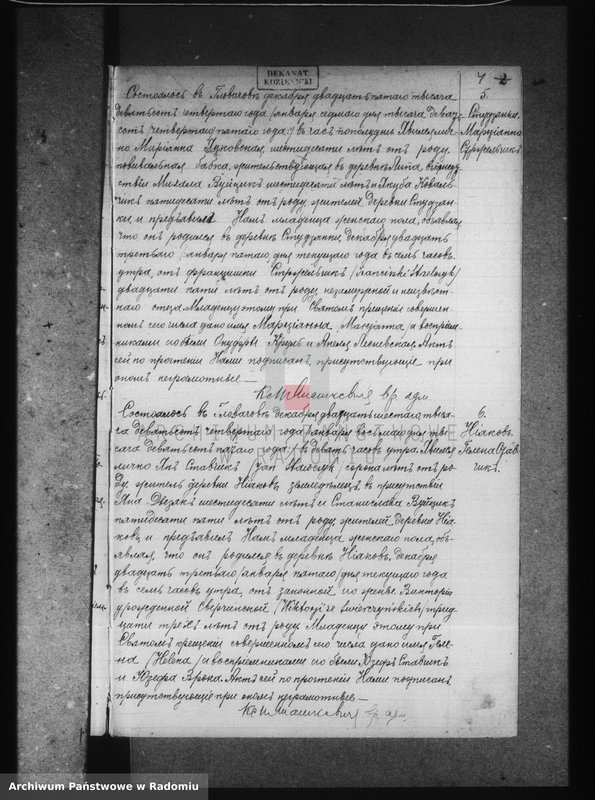 DEKANAT
KOZIENICKI
5.
Студзянки.
Марціанна
Состоялось въ Гловачовѣ декабря двадцать пятаго тысяча
девятьсотъ четвертаго года /января седьмаго дня тысяча девять
сотъ /четвертаго/ пятаго года:/ въ часъ пополудни. Явилась лич
но Маріанна Луковская, шестидесяти лѣтъ отъ роду,
повивальная бабка, жительствующая въ деревнѣ Липа, въ присут
ствіи Михала Вуйцикъ шестидесяти лѣтъ и Якуба Коваль
чикъ пятидесяти лѣтъ отъ роду, жителей деревни Студзян
ки, и предъявила Намъ младенца женскаго пола, объявляя,
что онъ родился въ деревнѣ Студзянки, декабря двадцать
третьяго /января пятаго/ дня текущаго года въ семь часовъ
утра, отъ Франтишки
двадцати пяти лѣтъ отъ роду, незамужней и неизвѣст
наго отца. Младенцу этому при Святомъ крещеніи совершен
номъ сего числа дано имя Марціанна, а воспріем
никами его были Онуфрій и Апеля Актъ
сей по прочтеніи Нами подписанъ, присутствующіе при
ономъ неграмотные.—
6.
Ніяковъ.
Гелена Став
чикъ.
Состоялось въ Гловачовѣ декабря двадцать шестаго тыся
ча девятьсотъ четвертаго года /января восьмаго дня ты
сяча девятьсотъ пятаго года:/ въ девять часовъ утра. Явился
лично Янъ /Jan сорока лѣтъ отъ ро
ду, житель деревни Ніяковъ земледѣлецъ, въ присутствіи
Яна шестидесяти лѣтъ и Станислава Вуйцикъ
пятидесяти пяти лѣтъ отъ роду, жителей деревни Нія
ковъ, и предъявилъ Намъ младенца женскаго пола, объ
являя, что онъ родился въ деревнѣ Ніяковъ, декабря
двадцать третьяго /января пятаго/ дня текущаго года
въ семь часовъ утра, отъ законной его жены Викторіи
урожденной Сверчинской /Wiktorji ze Świerczyńskich/, трид
цати трехъ лѣтъ отъ роду. Младенцу этому при
Святомъ крещеніи совершенномъ сего числа дано имя Геле
на /Helena/ а воспріемниками его были Юзефъ
и Юзефа Актъ сей по прочтеніи Нами подписанъ,
присутствующіе при ономъ неграмотные.—
ARCHIWUM PAŃSTWOWE
W RADOMIU
Archiwum Państwowe w Radomiu